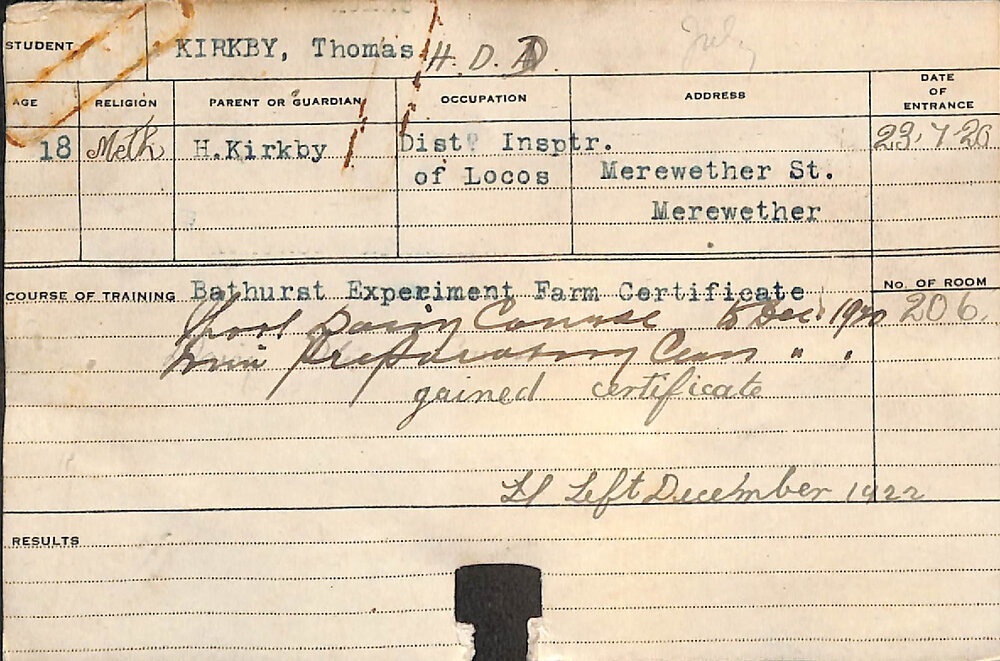 STUDENT KIRKBY, Thomas H. D. D.
July
AGE RELIGION PARENT OR GUARDIAN OCCUPATION ADDRESS DATE OF ENTRANCE
18 Meth H.Kirkby Dist. Insptr. 23.7.20
of Locos Merewether St.
Merewether
COURSE OF TRAINING Bathurst Experiment Farm Certificate No. OF ROOM
Dairy Course Dec. 1920 206.
Preparatory " "
gained certificate
Left December 1922
RESULTS